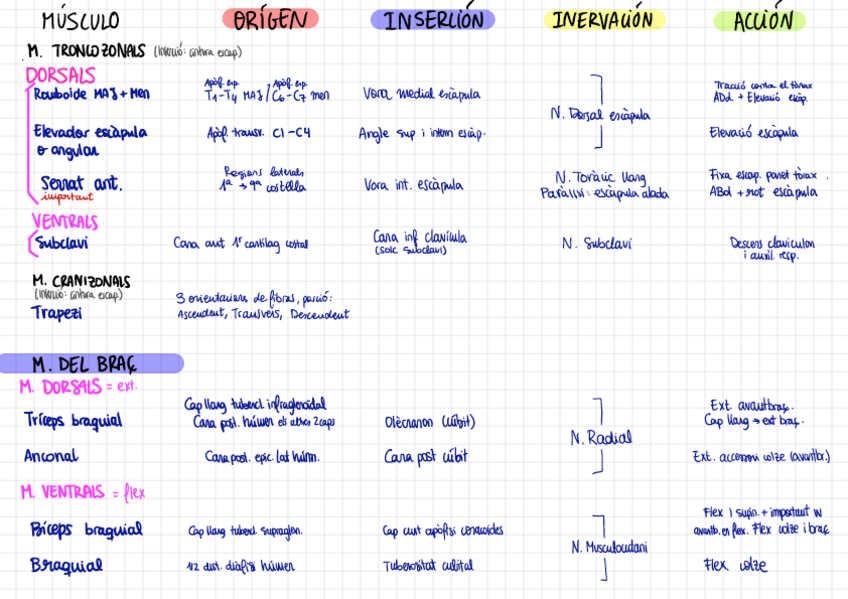 MÚSCULO ORÍGEN INSERCIÓN INERVACIÓN ACCIÓN
M. TRONCOZONALS (Inserció: cintura escap)
DORSALS
Apòf. esp. Apòf. esp.
Romboide MAJ + Men T1-T4 MAJ / C6-C7 men Vora medial escàpula Tracció contra el tòrax
ADd. + Elevació escàp.
N. Dorsal escàpula
Elevador escàpula Apòf. transv. C1-C4 Angle sup i intern escàp. Elevació escàpula
o angular
Regions laterals N. Toràcic llarg Fixa escap. paret tòrax.
Serrat ant. 1ª → 9ª costella Vora int. escàpula Paràlisi: escàpula alada ABd + rot escàpula
important
VENTRALS
Subclavi Cara ant 1r cartílag costal Cara inf clavícula N. Subclavi Descens clavicular
(solc subclavi) i auxil. resp.
M. CRANIZONALS
(Inserció: cintura escap.)
3 orientacions de fibras, porció:
Trapezi Ascendent, Transvers, Descendent
M. DEL BRAÇ
M. DORSALS = ext.
Cap llarg tubercl. infraglenoidal Ext. avantbraç.
Tríceps braquial Cara post. húmer els altres 2 caps Olècranon (cúbit) Cap llarg → ext braç.
N. Radial
Anconal Cara post. epic. lat húm. Cara post cúbit Ext. accessori colze (avantbr.)
M. VENTRALS = flex
Flex i supin. + important
Bíceps braquial Cap llarg tubercl. supraglen. Cap curt apòfisi coracoides avantb. en flex. Flex colze i braç
N. Musculocutani
Braquial 1/2 dist. diàfisi húmer Tuberositat cubital Flex. colze